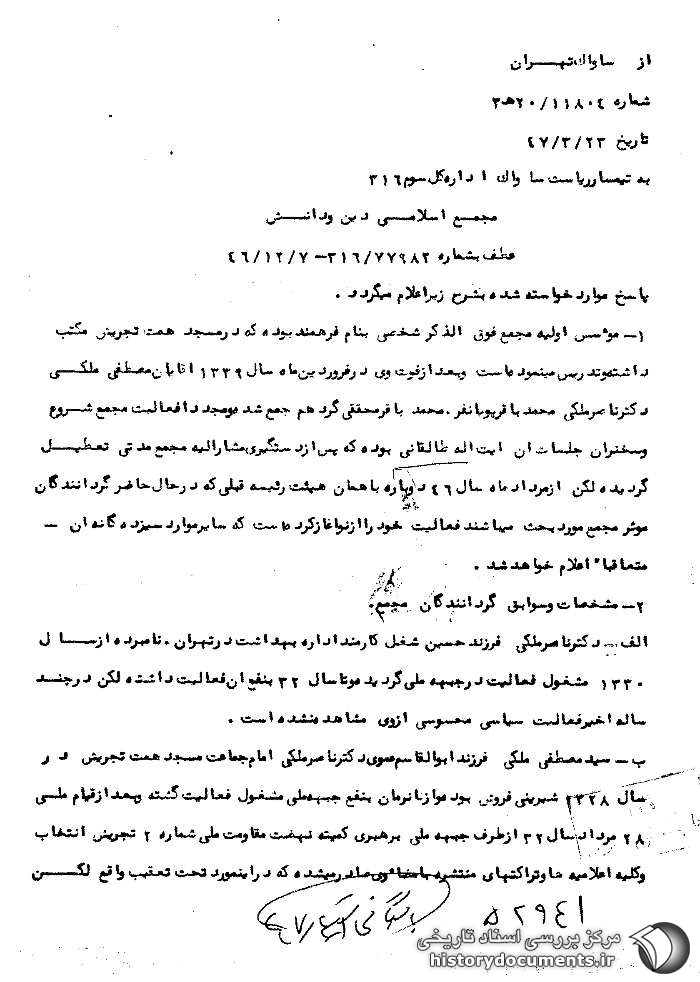 از ساواک تهران
شماره ۲۰/۱۱۸۰۴ه۳
تاریخ ۴۷/۳/۲۳
به تیمسار ریاست ساواک اداره کل سوم ۳۱۶
مجمع اسلامی دین ودانش
عطف بشماره ۳۱۶/۷۷۹۸۲ – ۴۶/۱۲/۷
پاسخ موارد خواسته شده بشرح زیر اعلام میگردد .
۱– موسس اولیه مجمع فوق الذکر شخصی بنام فرهمند بوده که در مسجد همت تجریش مکتب
داشته وتدریس مینموده است وبعد از فوت وی در فروردین ماه سال ۱۳۳۹ اقایان مصطفی ملکی
دکتر ناصر ملکی محمد باقر محمد باقر محققی گرد هم جمع شده ومجددا فعالیت مجمع شروع
وسخنران جلسات ان ایت اله طالقانی بوده که پس از دستگیری مشارالیه مجمع مدتی تعطیل
گردیده لکن از مرداد ماه سال ۴۶ دوباره با همان هیئت رئیسه قبلی که در حال حاضر گردانندگان
موثر مجمع مورد بحث میباشند فعالیت خود را از نو اغاز کرده است که سایر موارد سیزده گانه ان –
متعاقبا" اعلام خواهد شد .
۲– مشخصات وسوابق گردانندگان مجمع .
الف – دکتر ناصر ملکی فرزند حسین شغل کارمند اداره بهداشت در تهران . نامبرده از سال
۱۳۳۰ مشغول فعالیت در جبهه ملی گردیده وتا سال ۳۲ بنفع ان فعالیت داشته لکن در چند
ساله اخیر فعالیت سیاسی محسوسی ازوی مشاهده نشده است .
ب – سید مصطفی ملکی فرزند ابوالقاسم عموی دکتر ناصر ملکی امام جماعت مسجد همت تجریش در
سال ۱۳۲۸ شیرینی فروش بوده واز انزمان بنفع جبهه ملی مشغول فعالیت گشته وبعد از قیام ملی
۲۸ مرداد سال ۳۲ از طرف جبهه ملی برهبری کمیته نهضت مقاومت ملی شماره ۲ تجریش انتخاب
وکلیه اعلامیه ها وتراکتهای منتشره بامضا وی صادر میشده که در اینمورد تحت تعقیب واقع لکن
۵۲۹۴۱
مرکز بررسی اسناد تاریخی
historydocuments.ir